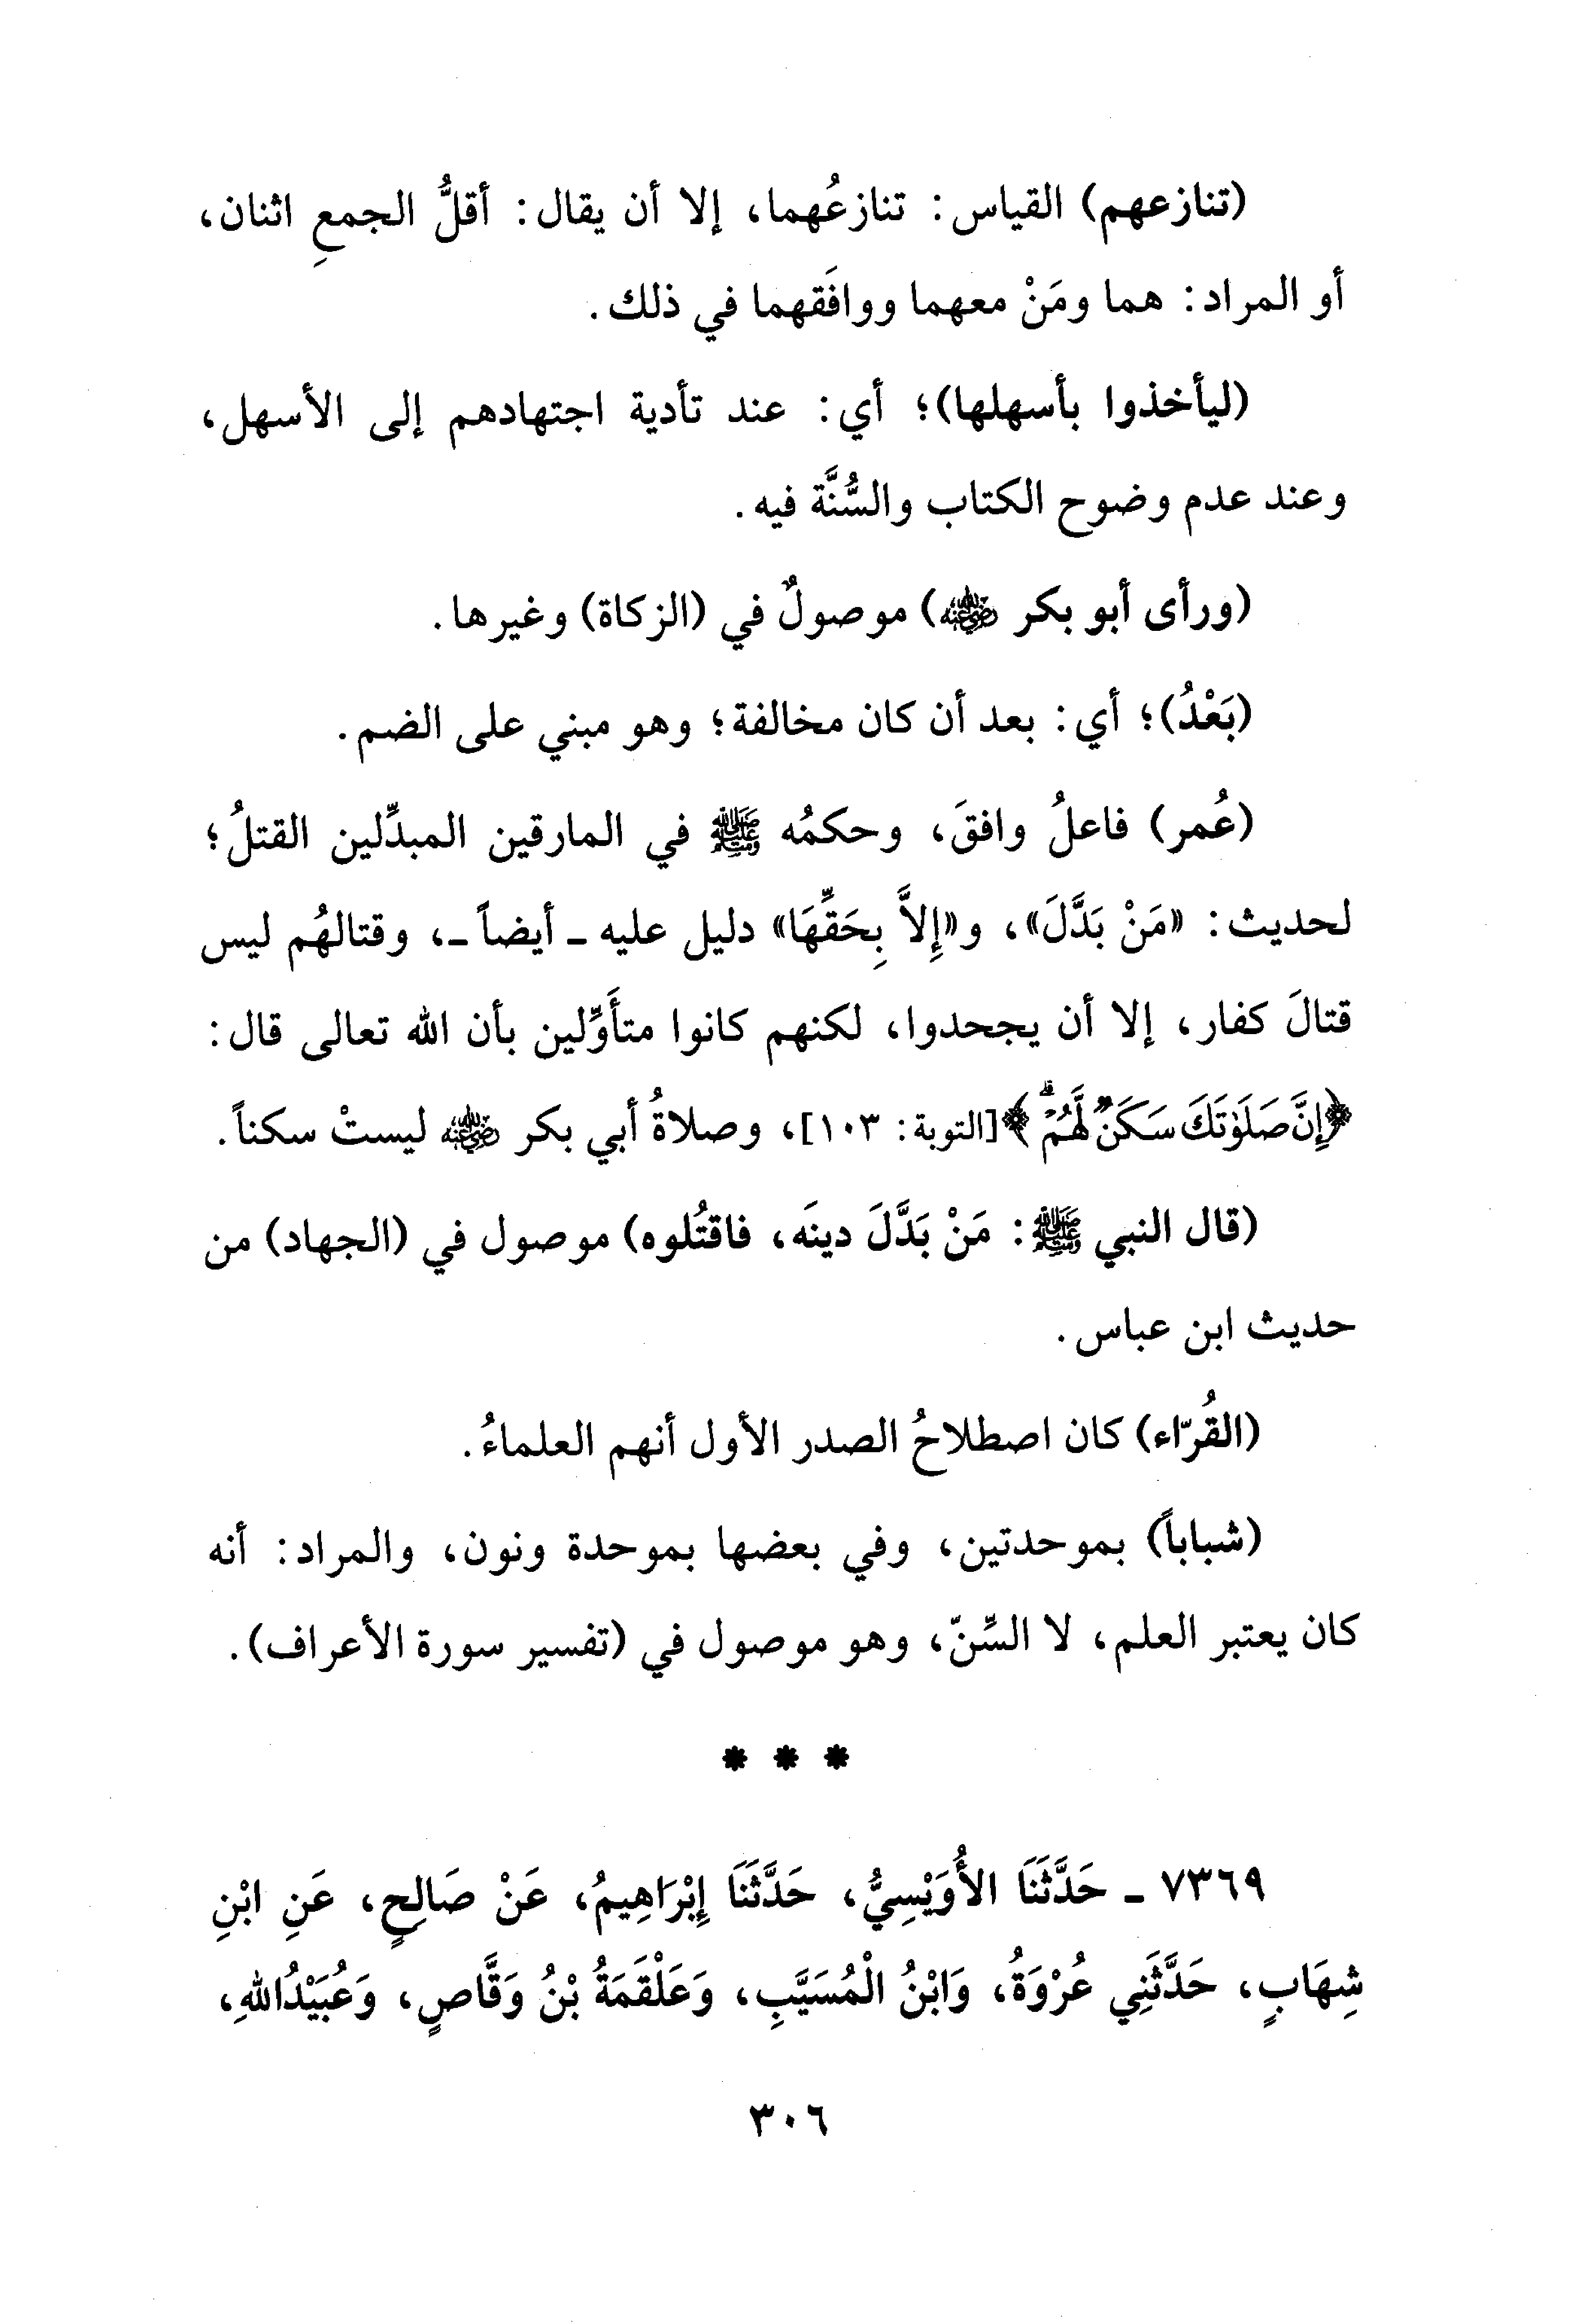 (تنازعهم) القياس: تنازعُهما، إلا أن يقال: أقلُّ الجمعِ اثنان،
أو المراد: هما ومَنْ معهما ووافَقهما في ذلك.
(ليأخذوا بأسهلها)؛ أي: عند تأدية اجتهادهم إلى الأسهل،
وعند عدم وضوح الكتاب والسُّنَّة فيه.
(ورأى أبو بكر رضي الله عنه) موصولٌ في (الزكاة) وغيرها.
(بَعْدُ)؛ أي: بعد أن كان مخالفة؛ وهو مبني على الضم.
(عُمر) فاعلُ وافقَ، وحكمُه ﷺ في المارقين المبدِّلين القتلُ؛
لحديث: «مَنْ بَدَّلَ»، و«إِلاَّ بِحَقِّهَا» دليل عليه ـ أيضاً ـ، وقتالهُم ليس
قتالَ كفار، إلا أن يجحدوا، لكنهم كانوا متأَوِّلين بأن الله تعالى قال:
﴿إِنَّ صَلَوٰتَكَ سَكَنٌ لَّهُمْ ۗ﴾[التوبة: ١٠٣]، وصلاةُ أبي بكر رضي الله عنه ليستْ سكناً.
(قال النبي ﷺ: مَنْ بَدَّلَ دينَه، فاقتُلوه) موصول في (الجهاد) من
حديث ابن عباس.
(القُرّاء) كان اصطلاحُ الصدر الأول أنهم العلماءُ.
(شباباً) بموحدتين، وفي بعضها بموحدة ونون، والمراد: أنه
كان يعتبر العلم، لا السِّنّ، وهو موصول في (تفسير سورة الأعراف).
* * *
٧٣٦٩ ـ حَدَّثَنَا الأُوَيْسِيُّ، حَدَّثَنَا إِبْرَاهِيمُ، عَنْ صَالِحٍ، عَنِ ابْنِ
شِهَابٍ، حَدَّثَنِي عُرْوَةُ، وَابْنُ الْمُسَيَّبِ، وَعَلْقَمَةُ بْنُ وَقَّاصٍ، وَعُبَيْدُاللهِ،
٣٠٦